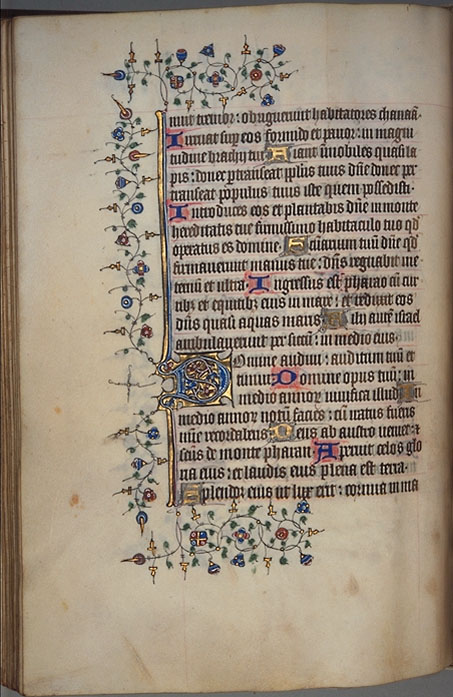 nuit tremor: obriguerunt habitatores chanaā.
Irruat sup eos formido et pauor: in magni
tudine brachij tui Fiant īmobiles quasi la
pis: donec ptranseat pplus tuus dn̄e donec per
transeat populus tuus iste quem possedisti.
Introduces eos et plantabis dn̄e in monte
hereditatis tue firmissimo habitaculo tuo qd̄
operatus es domine. Sc̄tuarium tuū dn̄e qd̄
firmauerunt manus tue: dn̄s regnabit ine
ternū et ultra. Ingressus est pharao cū cur
ribꝫ et equitibꝫ eius in mare: et reduxit eos
dn̄s quasi aquas maris Filij autē israel
ambulauerunt per siccū: in medio eius.
Domine audiui: auditum tuū et
timui. Domine opus tuū: in
medio annoꝝ uiuifica illud In
medio annoꝝ notū facies: cū iratus fueris
mīe recordaberis Deus ab austro ueniet: et
sc̄us de monte pharan. Aperuit celos glo
ria eius: et laudis eius plena est terra.
Splendor eius ut lux erit: cornua in ma